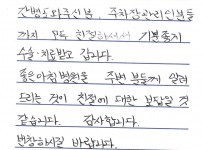 간병도와주신분, 주차장관리인분들
까지 모두 친절하셔서 기분좋게
수술·치료받고 갑니다.
좋은아침병원을 주변 분들께 알려
드리는 것이 친절에 대한 보답일 것
같습니다. 감사합니다.
번창하시길 바랍니다.